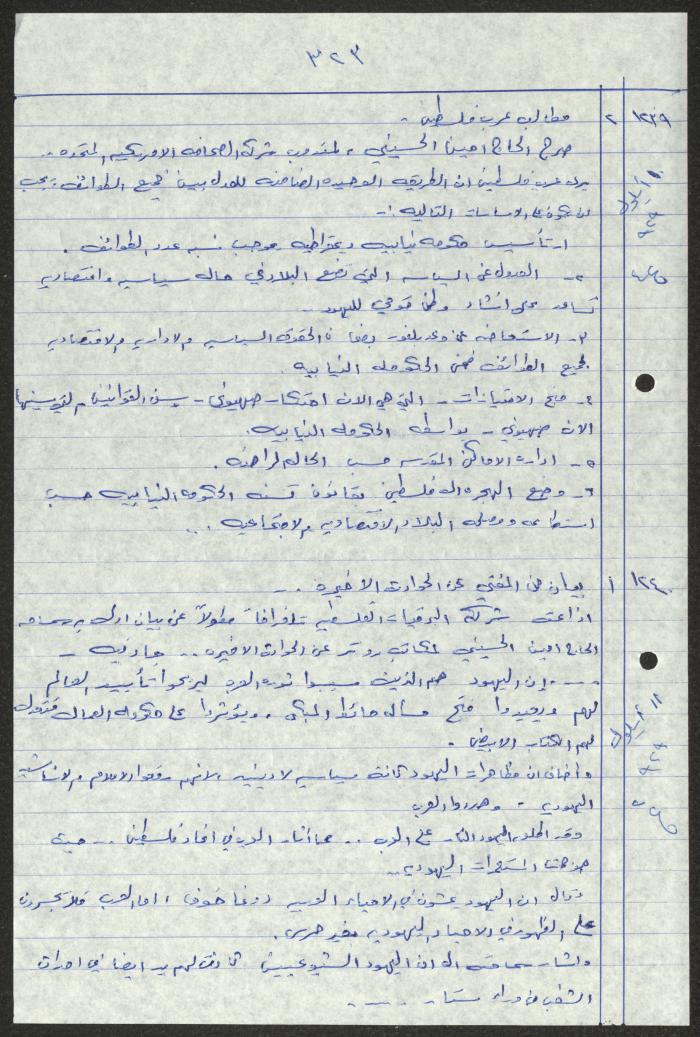 ٣٢٣
١٢٣٩ ٢ مطالب عرب فلسطين -
صرح الحاج امين الحسيني ، لمندوب شركة الصحافة الامريكية المتحدة ..
يرى عرب فلسطين ان الطريقة الوحيدة الضامنة للعدل بين جميع الطوائف ، يجب
ان تكون على الاساسات التالية :-
١- تأسيس حكومة نيابية ديمقراطية بموجب نسبة عدد الطوائف .
٢- العدول عن السياسة التي تضع البلاد في حالة سياسية واقتصادية
تساعد على انشاء وطن قومي لليهود ..
٣- الاستعاضة عن وعد بلفور بضمان الحقوق السياسية والادارية والاقتصادية
لجميع الطوائف ضمن الحكومة النيابية .
٤- منح الامتيازات - التي هي الان احتكار صهيوني - وسن القوانين التي يسنها
الان صهيوني - بواسطة الحكومة النيابية .
٥- ادارة الاماكن المقدسة حسب الحالة الراهنة .
٦- وضع الهجرة الى فلسطين بقانون تسنه الحكومة النيابية حسب
استطاعة ومصلحة البلاد الاقتصادية والاجتماعية ...
١٢٤٠ أ بيان من المفتي عن الحوادث الاخيرة ..
اذاعت شركة البرقيات الفلسطينية تلغرافا مطولاً عن بيان ادلى به سماحة
الحاج امين الحسيني لمكاتب روتر عن الحوادث الاخيرة .. جاء فيه -
--- ان اليهود هم الذين سببوا ثورة العرب ليربحوا تأييد العالم
لهم ويعيدوا فتح مسألة حائط المبكى ، ويؤثروا على حكومة العمال فتعدل
لهم الكتاب الابيض .
واضاف ان مظاهرات اليهود كانت سياسية لا دينية لانهم رفعوا الاعلام والاناشيد
اليهودية ، وهددوا العرب
وقد اطلق اليهود النار على العرب .. مما اثار العرب في انحاء فلسطين .. حيث
هوجمت المستعمرات اليهودية ..
وقال ان اليهود يمشون في الاحياء العربية دونما خوف ، اما العرب فلا يجسرون
على الظهور في الاحياء اليهودية بغير حرس .
واشار سماحته الى ان اليهود الشيوعيين كانت لهم يد ايضا في احداث
الشغب من وراء ستار ---